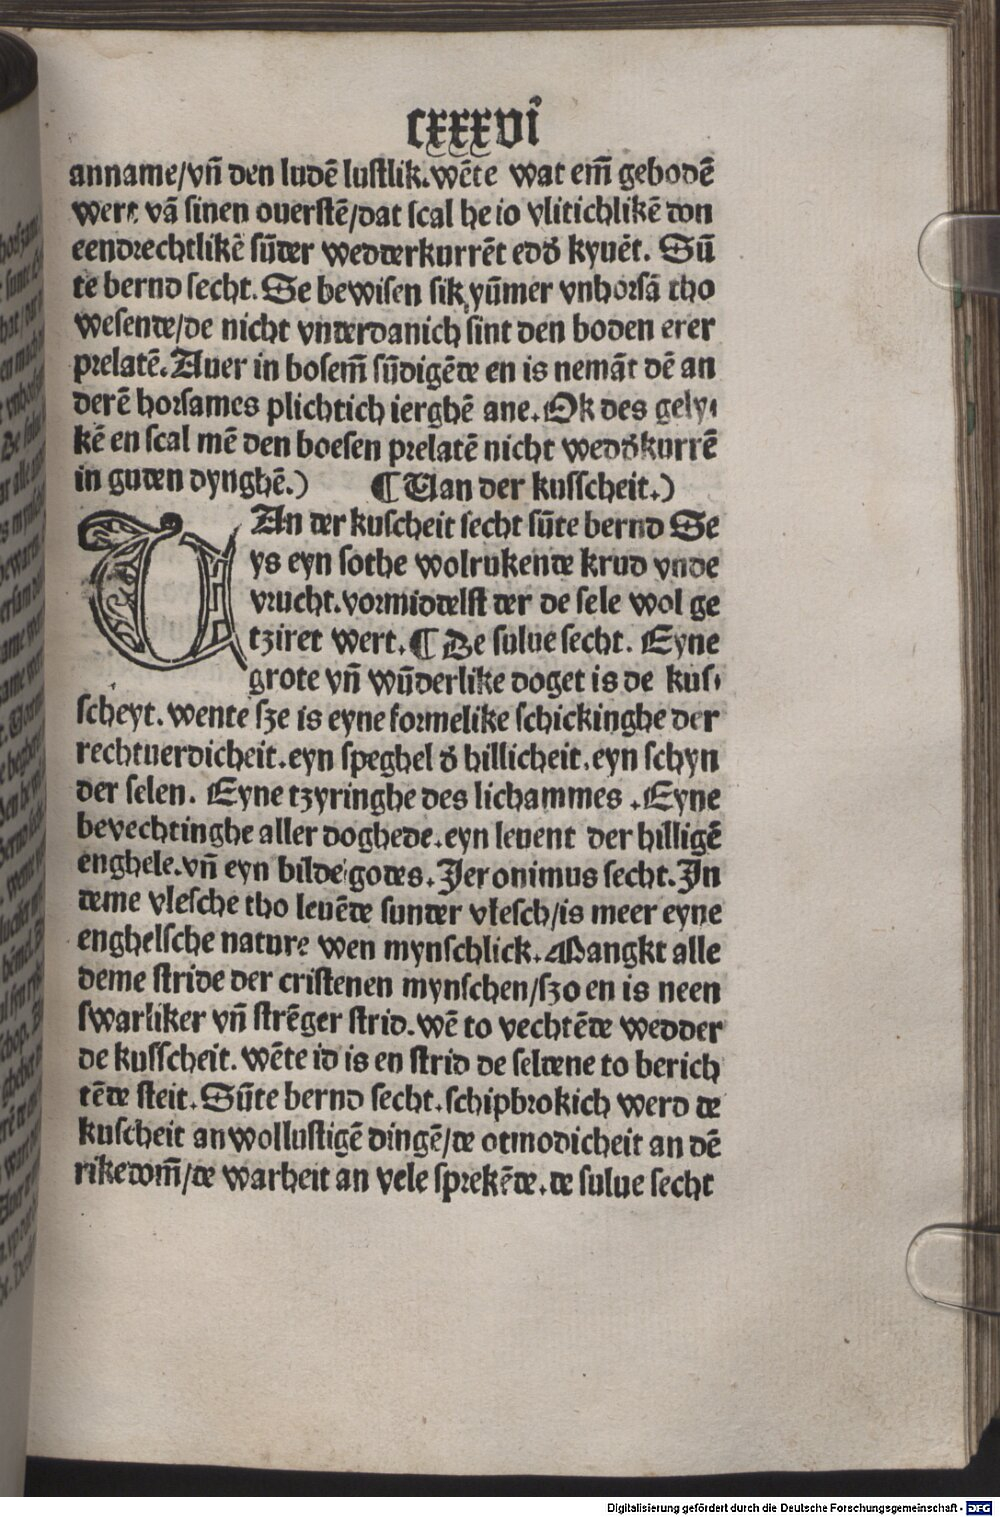 cxxxvi
anname/vñ den ludē lustlik.wēte wat em̄ gebodē
wert vā sinen ouerstē/dat scal he io vlitichlikē don
eendrechtlikē sūder wedderkurrēt edđ kyuēt. Sū
te bernd secht. Se bewisen sik yūmer vnhorsā tho
wesende/de nicht vnderdanich sint den boden erer
prelatē. Auer in bosem̄ sūdigēde en is nemāt dē an
derē horsames plichtich ierghē ane. Ok des gely⸗
kē en scal mē den boesen prelatē nicht weddđkurrē
in guden dynghē.) ¶ Uan der kusscheit.)
VAn der kuscheit secht sūte bernd Se
ys eyn sothe wolrukende krud vnde
vrucht.vormiddelst der de sele wol ge
tziret wert. ¶ De sulue secht. Eyne
grote vñ wūderlike doget is de kus⸗
scheyt. wente sze is eyne formelike schickinghe der
rechtuerdicheit.eyn speghel đ hillicheit.eyn schyn
der selen. Eyne tzyringhe des lichammes .Eyne
bevechtinghe aller doghede.eyn leuent der hilligē
enghele.vñ eyn bilde godes. Jeronimus secht. In
deme vlesche tho leuēde sunder vlesch/is meer eyne
enghelsche nature wen mynschlick. Mangkt alle
deme stride der cristenen mynschen/szo en is neen
swarliker vñ strēger strid. wē to vechtēde wedder
de kusscheit. wēte id is en strid de seldene to berich
tēde steit. Sūte bernd secht. schipbrokich werd de
kuscheit an wollustigē dingē/de otmodicheit an dē
rikedom̄/de warheit an vele sprekēde. de sulue secht
Digitalisierung gefördert durch die Deutsche Forschungsgemeinschaft - DFG